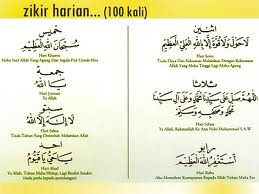 zikir harian... (100 kali)
خميس
سُبْحَانَ اللهِ الْعَظِيْمِ
Hari Khamis
Maha Suci Allah Yang Agung Dan Segala Puji Untuk-Nya
جمعة
يَا اَللهُ
Hari Jumaat
Ya Allah
لَا إِلَهَ إِلَّا اللهُ
Hari Sabtu
Tiada Tuhan Yang Disembah Melainkan Allah
احد
يَا حَيُّ يَا قَيُّوْمُ
Hari Ahad
Ya Allah, Tuhan Maha Hidup, Lagi Berdiri Sendiri
(tiada perlu kepada pertolongan)
اثنين
لَا حَوْلَ وَلَا قُوَّةَ إِلَّا بِاللهِ الْعَلِيِّ الْعَظِيْمِ
Hari Isnin
Tiada Daya Dan Kekuatan Melainkan Dengan Kekuatan
Allah Yang Maha Tinggi Lagi Maha Agung
ثلاثا
Hari Selasa
Ya Allah, Rahmatilah Ke Atas Nabi Muhammad S.A.W
رابو
أَسْتَغْفِرُ اللهَ الْعَظِيْمَ
Hari Rabu
Aku Memohon Keampunan Kepada Allah Tuhan Maha Esa.